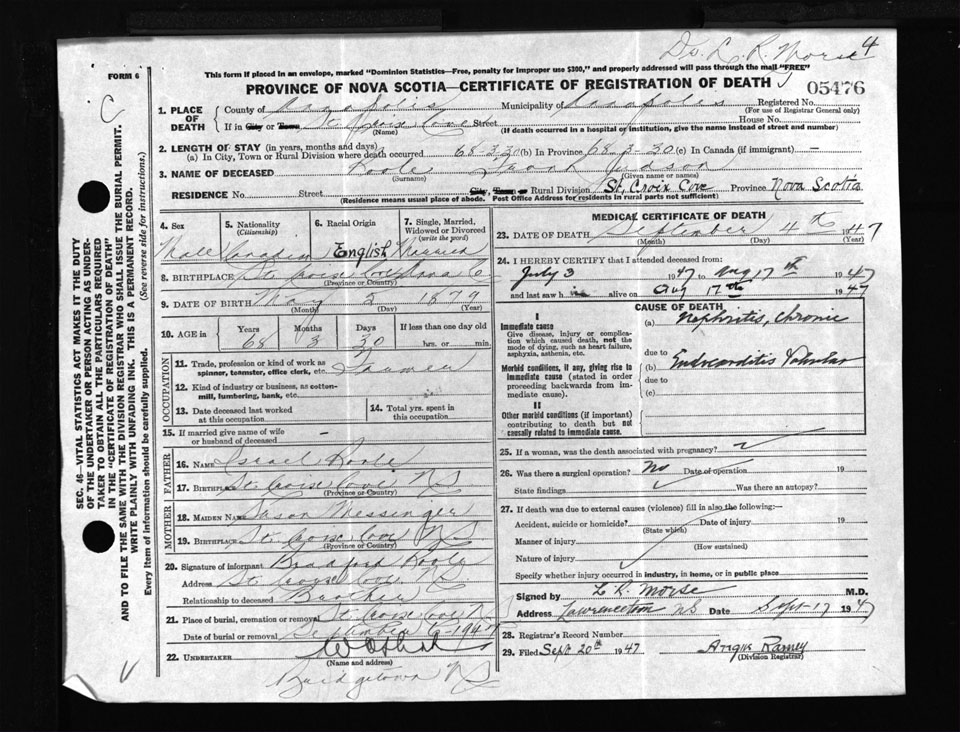 Dr. L. R. Morse 4
FORM 6
This form if placed in an envelope, marked "Dominion Statistics—Free, penalty for improper use $300," and properly addressed will pass through the mail "FREE"
PROVINCE OF NOVA SCOTIA—CERTIFICATE OF REGISTRATION OF DEATH
05476
C
1. PLACE OF DEATH
County of Annapolis Municipality of Annapolis Registered No.
(For use of Registrar General only)
If in City or Town, St Croix Cove Street House No.
(Name) (If death occurred in a hospital or institution, give the name instead of street and number)
2. LENGTH OF STAY (in years, months and days)
(a) In City, Town or Rural Division where death occurred 68-3-30 (b) In Province 68-3-30 (c) In Canada (if immigrant) —
3. NAME OF DECEASED Poole Judson
(Surname) (Given name or names)
RESIDENCE No. Street City, Town or Rural Division St. Croix Cove Province Nova Scotia
(Residence means usual place of abode. Post Office Address for residents in rural parts not sufficient)
SEC. 46—VITAL STATISTICS ACT MAKES IT THE DUTY
OF THE UNDERTAKER OR PERSON ACTING AS UNDER-
TAKER TO OBTAIN ALL THE PARTICULARS REQUIRED
IN THE "CERTIFICATE OF REGISTRATION OF DEATH"
AND TO FILE THE SAME WITH THE DIVISION REGISTRAR WHO SHALL ISSUE THE BURIAL PERMIT.
WRITE PLAINLY WITH UNFADING INK. THIS IS A PERMANENT RECORD.
Every item of information should be carefully supplied. (See reverse side for instructions.)
4. Sex
5. Nationality (Citizenship)
6. Racial Origin
7. Single, Married, Widowed or Divorced (write the word)
Male Canadian English Married
8. BIRTHPLACE St Croise Cove Anna Co
(Province or Country)
9. DATE OF BIRTH May 5 1879
(Month) (Day) (Year)
10. AGE in Years Months Days If less than one day old
68 3 30 hrs. or min.
OCCUPATION
11. Trade, profession or kind of work as spinner, teamster, office clerk, etc. Farmer
12. Kind of industry or business, as cotton-mill, lumbering, bank, etc.
13. Date deceased last worked at this occupation
14. Total yrs. spent in this occupation
15. If married give name of wife or husband of deceased —
FATHER
16. NAME Israel Poole
17. BIRTHPLACE St Croise Cove NS
(Province or Country)
MOTHER
18. MAIDEN NAME Messenger
19. BIRTHPLACE St Croise Cove NS
(Province or Country)
20. Signature of informant Bradford Poole
Address St Croise Cove NS
Relationship to deceased Brother
21. Place of burial, cremation or removal St Croise Cove NS
Date of burial or removal September 6 1947
22. UNDERTAKER
(Name and address)
Bridgetown NS
MEDICAL CERTIFICATE OF DEATH
23. DATE OF DEATH September 4th 1947
(Month) (Day) (Year)
24. I HEREBY CERTIFY that I attended deceased from:
July 3 1947 to Aug 17th 1947
and last saw him alive on Aug 17th 1947
CAUSE OF DEATH
I
Immediate cause
Give disease, injury or complication which caused death, not the mode of dying, such as heart failure, asphyxia, asthenia, etc.
(a) Nephritis, Chronic
due to
Morbid conditions, if any, giving rise to immediate cause (stated in order proceeding backwards from immediate cause).
(b) Endocarditis Valvular
due to
(c)
II
Other morbid conditions (if important) contributing to death but not causally related to immediate cause.
25. If a woman, was the death associated with pregnancy?
26. Was there a surgical operation? No Date of operation 19
State findings Was there an autopsy?
27. If death was due to external causes (violence) fill in also the following:—
Accident, suicide or homicide? Date of injury 19
(State which)
Manner of injury
(How sustained)
Nature of injury
Specify whether injury occurred in industry, in home, or in public place
Signed by L. R. Morse M.D.
Address Lawrencetown NS Date Sept-17 1947
28. Registrar's Record Number
29. Filed Sept 20th 1947 Angus Ramey
(Division Registrar)